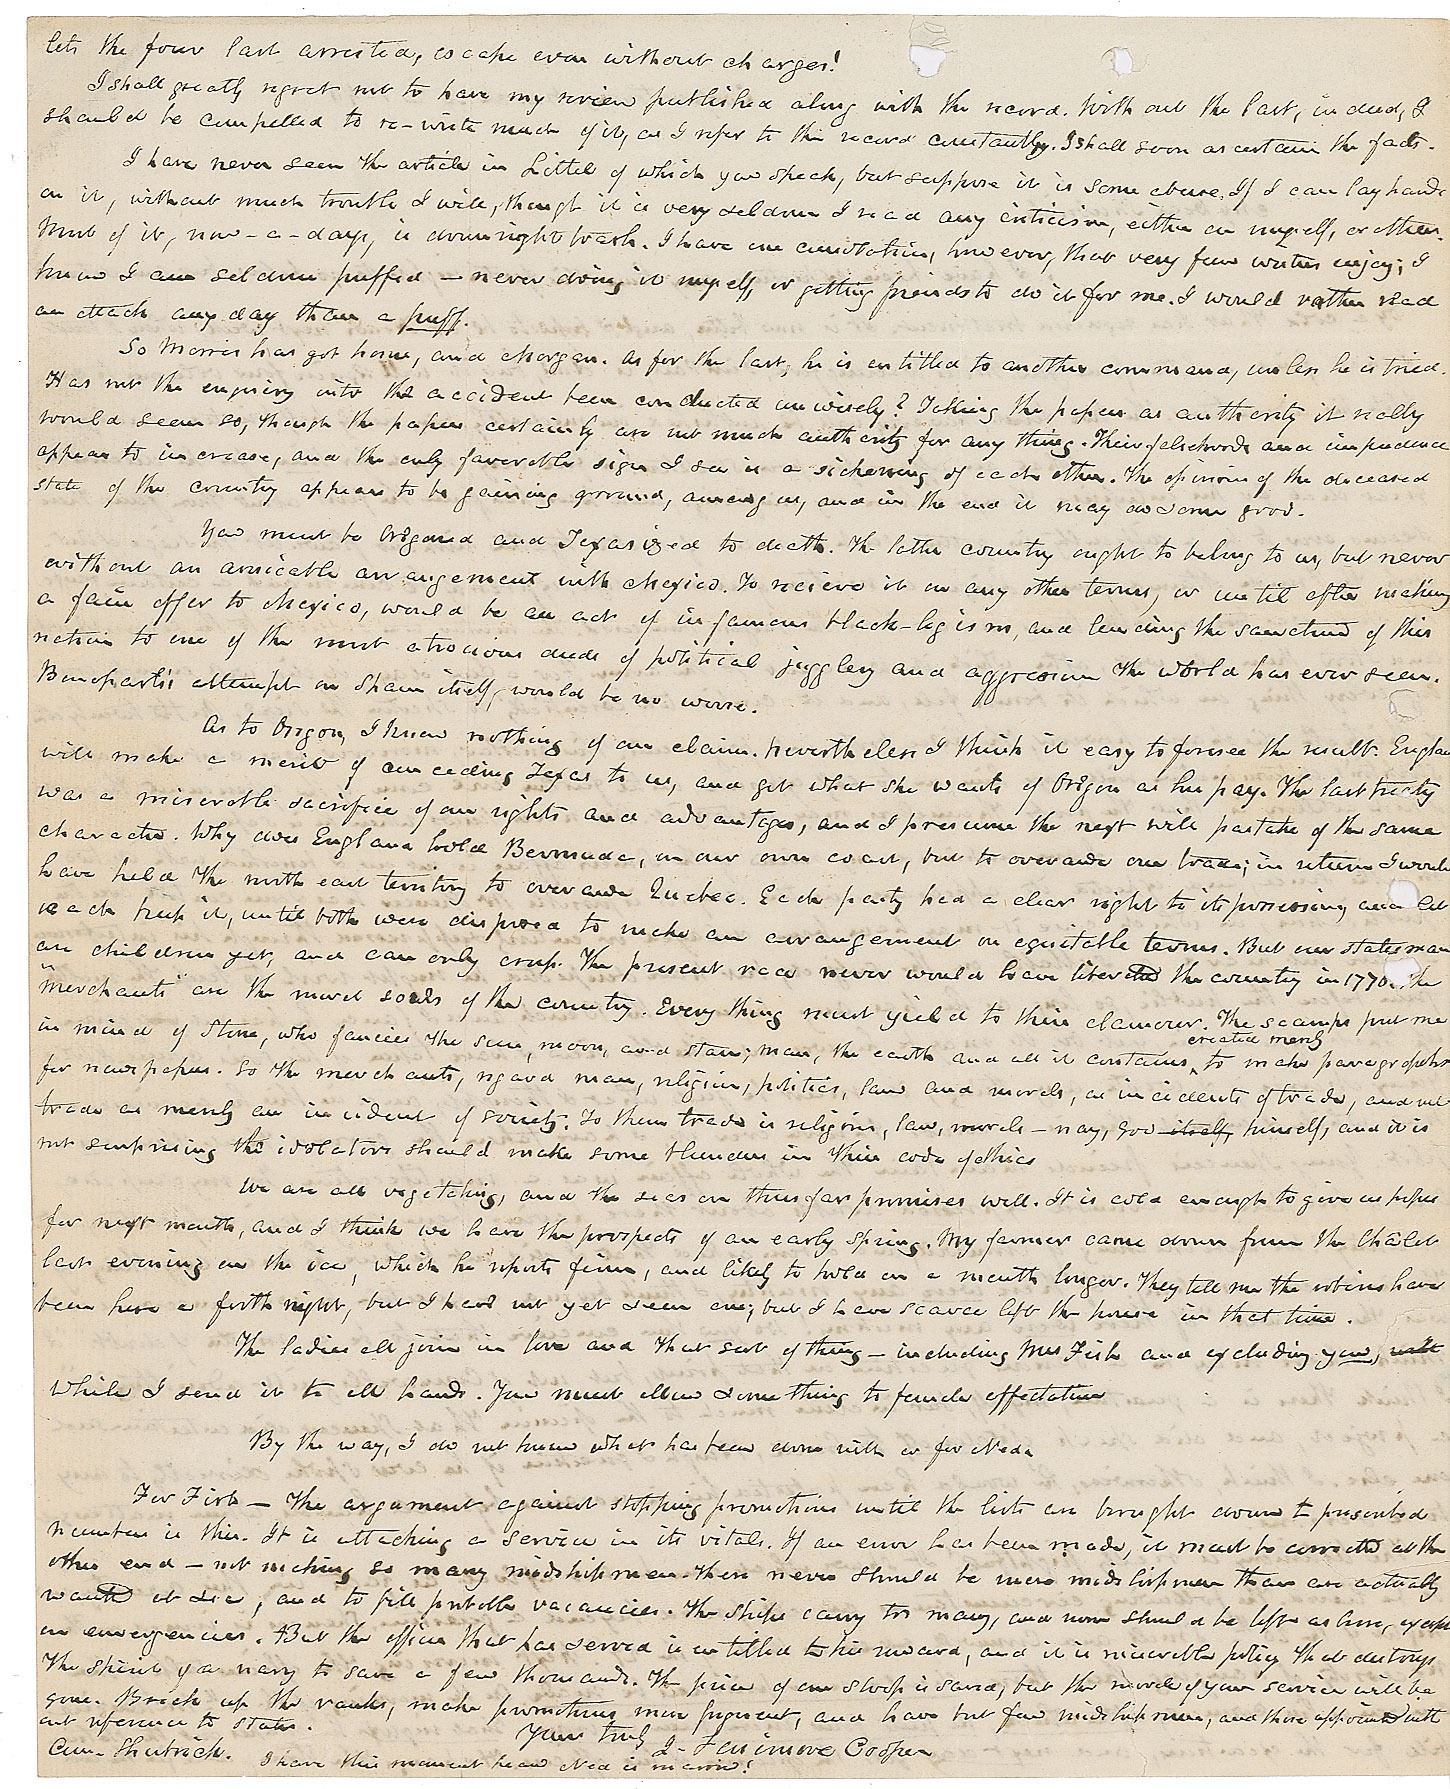 lets the four last arrested, escape even without charges!
I shall greatly regret not to have my review published along with the record. With out the last, indeed, I
should be compelled to re-write much of it, as I refer to the record constantly. I shall soon ascertain the facts.
I have never seen the article in Littel of which you speak, but suppose it is some abuse. If I can lay hands
on it, without much trouble I will, though it is very seldom I read any criticism, either on myself, or others.
Most of it, now-a-days, is downright trash. I have one consolation, however, that very few writers enjoy; I
know I am seldom puffed — never doing it myself, or getting friends to do it for me. I would rather read
an attack any day than a puff.
So Morris has got home, and Morgan. As for the last, he is entitled to another command, unless he is tried.
Has not the enquiry into the accident been conducted unwisely? Taking the papers as authority it really
would seem so, though the papers certainly are not much authority for any thing. Their falsehoods and impudence
appear to increase, and the only favorable sign I see is a sickening of each other. The opinion of the diseased
state of the country appears to be gaining ground, among us, and in the end it may do some good.
You must be Origoned and Texasized to death. The latter country ought to belong to us, but never
without an amicable arrangement with Mexico. To recieve it on any other terms, or until after making
a fair offer to Mexico, would be an act of infamous black-legism, and lending the sanction of this
nation to one of the most atrocious deeds of political jugglery and aggression the world has ever seen.
Bonaparte's attempt on Spain itself, would be no worse.
As to Origon, I know nothing of our claim. Nevertheless I think it easy to foresee the result. England
will make a merit of conceding Texas to us, and get what she wants of Origon as her pay. The last treaty
was a miserable sacrifice of our rights and advantages, and I presume the next will partake of the same
character. Why does England hold Bermuda, on our own coast, but to overawe our trade; in return I would
have held the north east territory to overawe Quebec. Each party had a clear right to its possession, and let
each keep it, until both were disposed to make an arrangement on equitable terms. But our statesmen
are children yet, and can only creep. The present race never would have liberated the country in 1770. The
"merchants" are the moral souls of the country. Every thing must yield to their clamour. The scamps put me
in mind of Stone, who fancies the sun, moon, and stars; man, the earth and all it contains, created merely to make paragraphs
for newspapers. So the merchants, regard man, religion, politics, law and morals, as incidents of trade, and not
trade as merely an incident of society. To them trade is religion, law, morals — nay, God itself, himself, and it is
not surprising the idolators should make some blunders in their code of ethics
We are all vegetating, and the season thus far promises well. It is cold enough to give us pipes
for next month, and I think we have the prospects of an early spring. My farmer came down from the Châlet
last evening on the ice, which he reports firm, and likely to hold on a month longer. They tell me the robins have
been here a forthnight, but I have not yet seen one; but I have scarce left the house in that time.
The ladies all join in love and that sort of thing — including Mrs Fish and excluding you,
while I send it to all hands. You must allow something to female affectation
By the way, I do not know what has been done with or for Ned.
For Fish — The argument against stopping promotions until the lists are brought down to prescribed
numbers is this. It is attacking a service in its vitals. If an error has been made, it must be corrected at the
other end — not making so many midshipmen. There never should be more midshipmen than are actually
wanted at sea, and to fill probable vacancies. The ships carry too many, and none should be left ashore, except
in emergencies. But the officer that has served is entitled to his reward, and it is miserable policy that destroys
the spirit of a navy to save a few thousands. The price of one sloop is saved, but the morale of your service will be
gone. Break up the ranks, make promotions more frequent, and have but few midshipmen, and those appointed with
out reference to states.
Yours truly J. Fenimore Cooper
Com. Shubrick.
I have this moment heard Ned is married!